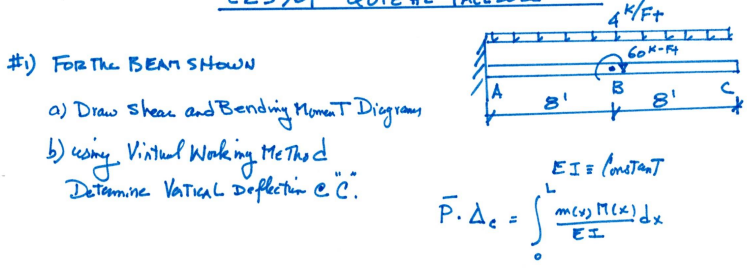 4 K/Ft
#1) FOR The BEAM SHOWN
60 K-Ft
A
B
C
8'
8'
a) Draw Shear and Bending Moment Diagrams
b) using Virtual Working Method
Determine Vertical Deflection @ "C".
EI = Constant
P̄·Δc = ∫₀ᴸ m(x) M(x) / EI dx